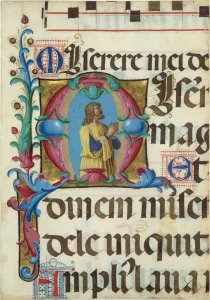 Miserere mei de
Miserē
mag
et
dinem miser
dele iniquit
Ampli' laua m